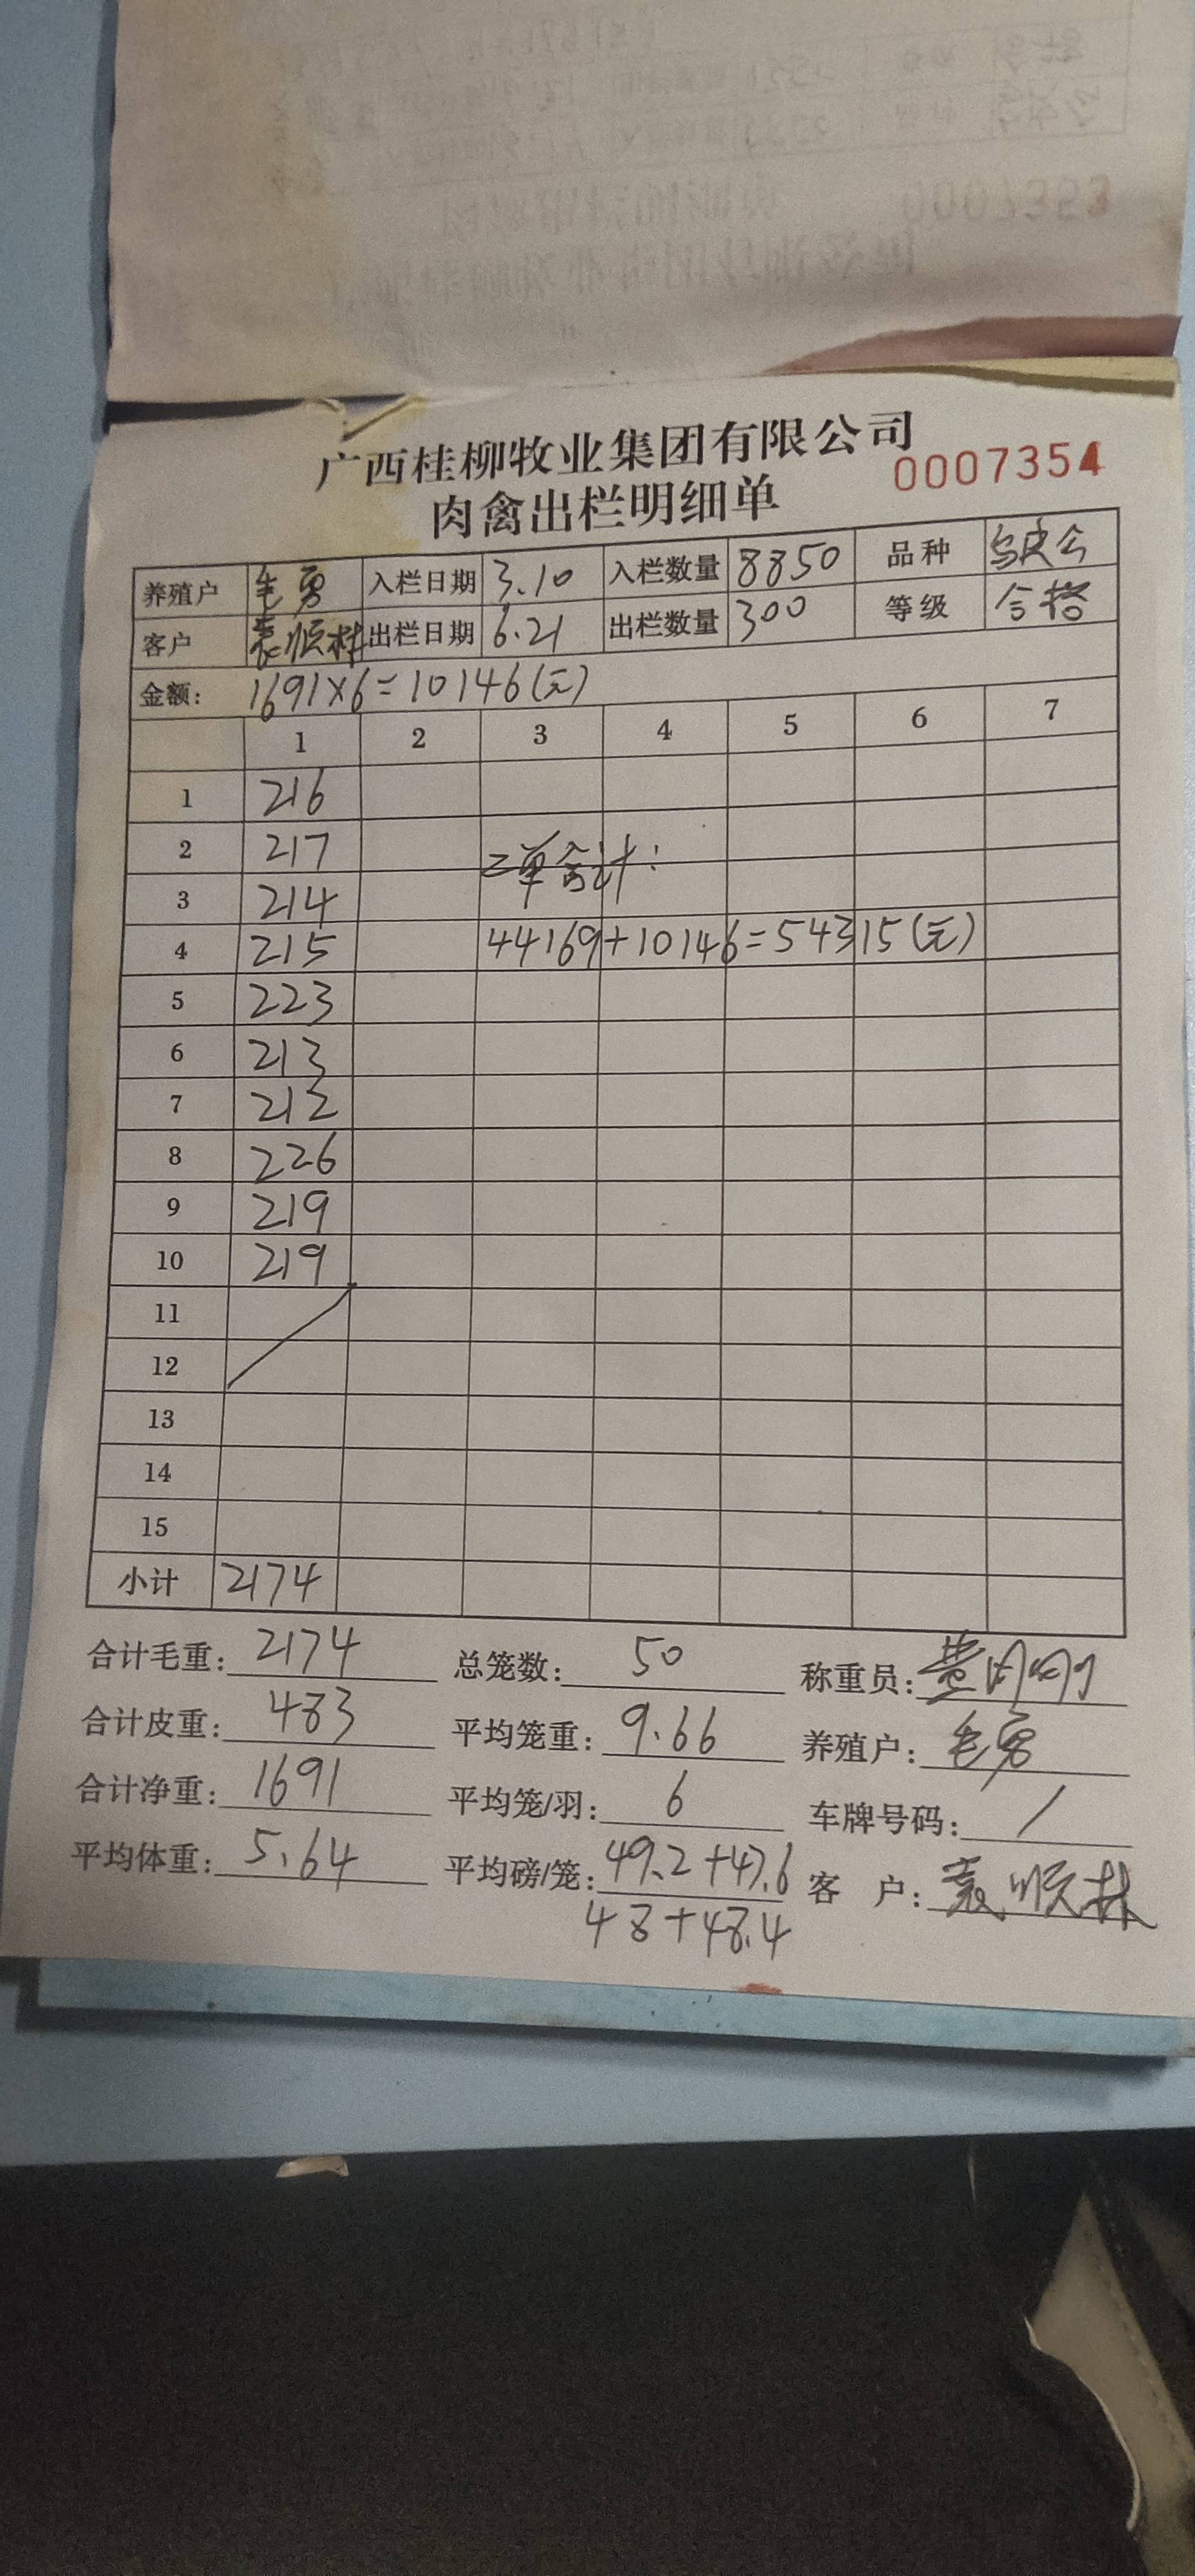 广西桂柳牧业集团有限公司
肉禽出栏明细单
0007354
养殖户 毛勇 入栏日期 3.10 入栏数量 8850 品种 乌皮公
客户 袁顺林 出栏日期 6.21 出栏数量 300 等级 合格
金额: 1691×6=10146(元)
1 2 3 4 5 6 7
1 216
2 217 二单合计:
3 214
4 215 44169+10146=54315(元)
5 223
6 213
7 212
8 226
9 219
10 219
11
12
13
14
15
小计 2174
合计毛重: 2174 总笼数: 50 称重员:
合计皮重: 483 平均笼重: 9.66 养殖户: 毛勇
合计净重: 1691 平均笼/羽: 6 车牌号码: /
平均体重: 5.64 平均磅/笼: 49.2+47.6 客 户: 袁顺林
48+48.4